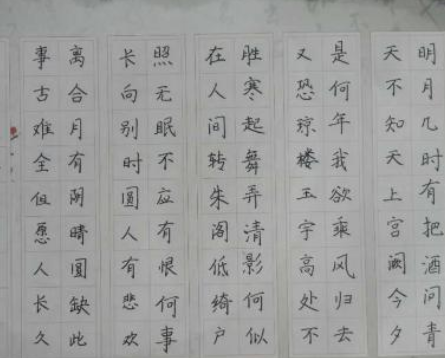 明月几时有把酒问青
天不知天上宫阙今夕
是何年我欲乘风归去
又恐琼楼玉宇高处不
胜寒起舞弄清影何似
在人间转朱阁低绮户
照无眠不应有恨何事
长向别时圆人有悲欢
离合月有阴晴圆缺此
事古难全但愿人长久